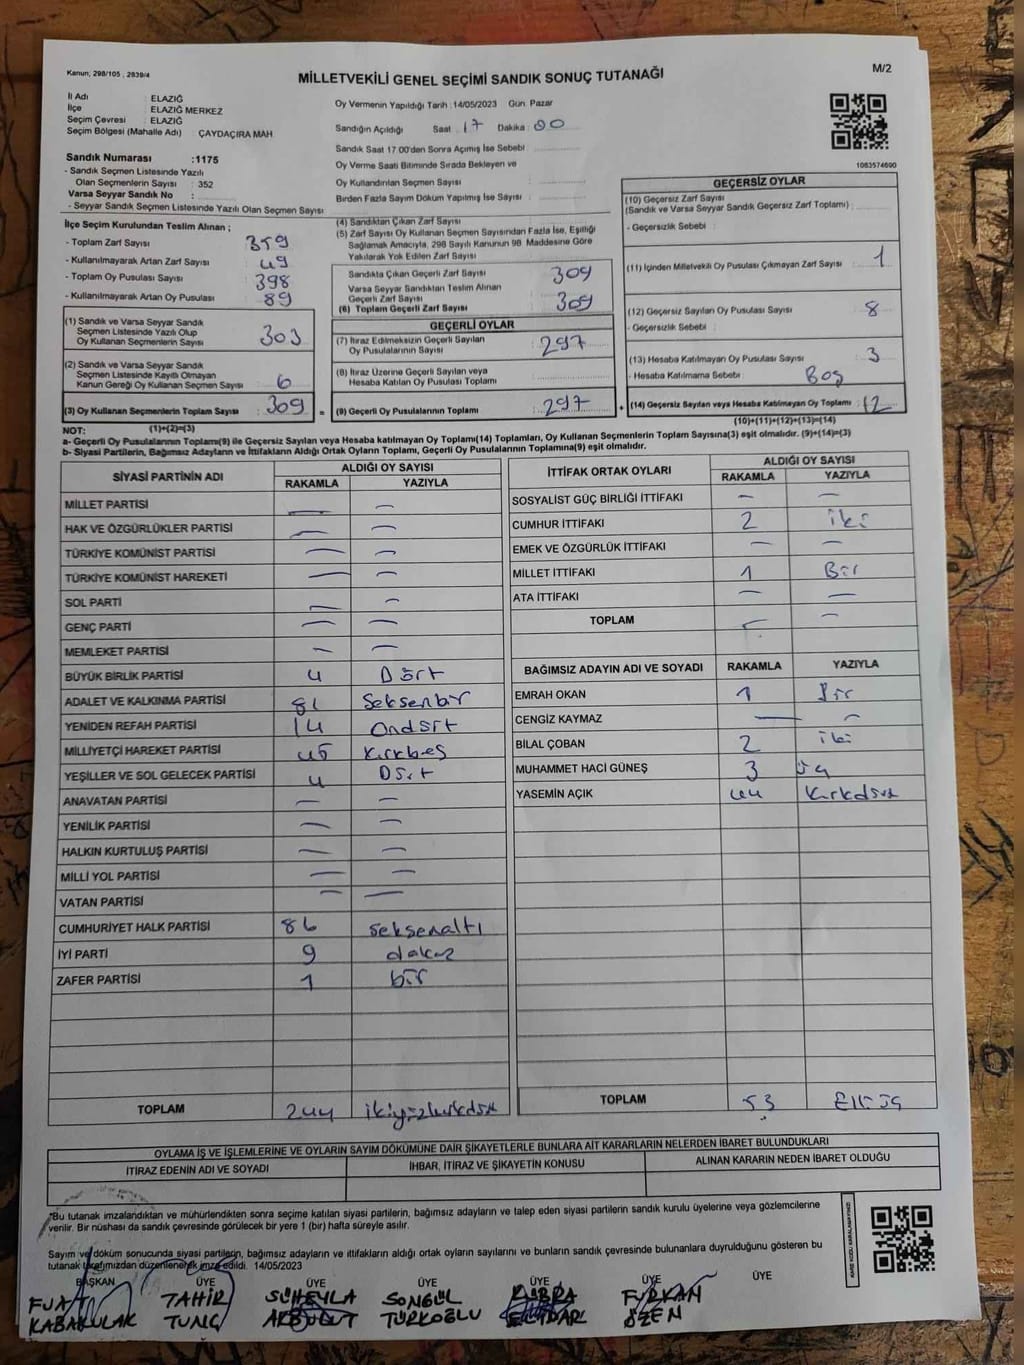 Kanun, 298/105 , 2839/4
MİLLETVEKİLİ GENEL SEÇİMİ SANDIK SONUÇ TUTANAĞI
M/2
İl Adı : ELAZIĞ
İlçe : ELAZIĞ MERKEZ
Seçim Çevresi : ELAZIĞ
Seçim Bölgesi (Mahalle Adı) : ÇAYDAÇIRA MAH.
Sandık Numarası :1175
- Sandık Seçmen Listesinde Yazılı
Olan Seçmenlerin Sayısı : 352
Varsa Seyyar Sandık No :
- Seyyar Sandık Seçmen Listesinde Yazılı Olan Seçmen Sayısı
Oy Vermenin Yapıldığı Tarih :14/05/2023 Gün: Pazar
Sandığın Açıldığı Saat : 17 Dakika : 00
Sandık Saat 17:00'den Sonra Açımış İse Sebebi :
Oy Verme Saati Bitiminde Sırada Bekleyen ve
Oy Kullandırılan Seçmen Sayısı :
Birden Fazla Sayım Döküm Yapılmış İse Sayısı :
1083574690
İlçe Seçim Kurulundan Teslim Alınan ;
- Toplam Zarf Sayısı : 359
- Kullanılmayarak Artan Zarf Sayısı : 49
- Toplam Oy Pusulası Sayısı : 398
- Kullanılmayarak Artan Oy Pusulası : 89
(1) Sandık ve Varsa Seyyar Sandık
Seçmen Listesinde Yazılı Olup
Oy Kullanan Seçmenlerin Sayısı : 303
(2) Sandık ve Varsa Seyyar Sandık
Seçmen Listesinde Kayıtlı Olmayan
Kanun Gereği Oy Kullanan Seçmen Sayısı : 6
(3) Oy Kullanan Seçmenlerin Toplam Sayısı : 309 =
(1)+(2)=(3)
(4) Sandıktan Çıkan Zarf Sayısı
(5) Zarf Sayısı Oy Kullanan Seçmen Sayısından Fazla İse, Eşitliği
Sağlamak Amacıyla, 298 Sayılı Kanunun 98. Maddesine Göre
Yakılarak Yok Edilen Zarf Sayısı
Sandıkta Çıkan Geçerli Zarf Sayısı 309
Varsa Seyyar Sandıktan Teslim Alınan
Geçerli Zarf Sayısı
(6) Toplam Geçerli Zarf Sayısı : 309
GEÇERLİ OYLAR
(7) İtiraz Edilmeksizin Geçerli Sayılan
Oy Pusulalarının Sayısı : 297
(8) İtiraz Üzerine Geçerli Sayılan veya
Hesaba Katılan Oy Pusulası Toplamı :
(9) Geçerli Oy Pusulalarının Toplamı : 297 +
GEÇERSİZ OYLAR
(10) Geçersiz Zarf Sayısı
(Sandık ve Varsa Seyyar Sandık Geçersiz Zarf Toplamı) :
- Geçersizlik Sebebi :
(11) İçinden Milletvekili Oy Pusulası Çıkmayan Zarf Sayısı : 1
(12) Geçersiz Sayılan Oy Pusulası Sayısı : 8
- Geçersizlik Sebebi :
(13) Hesaba Katılmayan Oy Pusulası Sayısı : 3
- Hesaba Katılmama Sebebi : Boş
(14) Geçersiz Sayılan veya Hesaba Katılmayan Oy Toplamı : 12
(10)+(11)+(12)+(13)=(14)
NOT:
a- Geçerli Oy Pusulalarının Toplamı(9) ile Geçersiz Sayılan veya Hesaba katılmayan Oy Toplamı(14) Toplamları, Oy Kullanan Seçmenlerin Toplam Sayısına(3) eşit olmalıdır. (9)+(14)=(3)
b- Siyasi Partilerin, Bağımsız Adayların ve İttifakların Aldığı Ortak Oyların Toplamı, Geçerli Oy Pusulalarının Toplamına(9) eşit olmalıdır.
SİYASİ PARTİNİN ADI ALDIĞI OY SAYISI
RAKAMLA YAZIYLA
MİLLET PARTİSİ — —
HAK VE ÖZGÜRLÜKLER PARTİSİ — —
TÜRKİYE KOMÜNİST PARTİSİ — —
TÜRKİYE KOMÜNİST HAREKETİ — —
SOL PARTİ — —
GENÇ PARTİ — —
MEMLEKET PARTİSİ — —
BÜYÜK BİRLİK PARTİSİ 4 Dört
ADALET VE KALKINMA PARTİSİ 81 Seksenbir
YENİDEN REFAH PARTİSİ 14 Ondört
MİLLİYETÇİ HAREKET PARTİSİ 45 Kırkbeş
YEŞİLLER VE SOL GELECEK PARTİSİ 4 Dört
ANAVATAN PARTİSİ — —
YENİLİK PARTİSİ — —
HALKIN KURTULUŞ PARTİSİ — —
MİLLİ YOL PARTİSİ — —
VATAN PARTİSİ — —
CUMHURİYET HALK PARTİSİ 86 seksenaltı
İYİ PARTİ 9 dokuz
ZAFER PARTİSİ 1 bir
TOPLAM 244 ikiyüzkırkdört
İTTİFAK ORTAK OYLARI ALDIĞI OY SAYISI
RAKAMLA YAZIYLA
SOSYALİST GÜÇ BİRLİĞİ İTTİFAKI — —
CUMHUR İTTİFAKI 2 iki
EMEK VE ÖZGÜRLÜK İTTİFAKI — —
MİLLET İTTİFAKI 1 Bir
ATA İTTİFAKI — —
TOPLAM —
BAĞIMSIZ ADAYIN ADI VE SOYADI RAKAMLA YAZIYLA
EMRAH OKAN 1 Bir
CENGİZ KAYMAZ — —
BİLAL ÇOBAN 2 iki
MUHAMMET HACİ GÜNEŞ 3 üç
YASEMİN AÇIK 44 Kırkdört
TOPLAM 53 Elliüç
OYLAMA İŞ VE İŞLEMLERİNE VE OYLARIN SAYIM DÖKÜMÜNE DAİR ŞİKAYETLERLE BUNLARA AİT KARARLARIN NELERDEN İBARET BULUNDUKLARI
İTİRAZ EDENİN ADI VE SOYADI İHBAR, İTİRAZ VE ŞİKAYETİN KONUSU ALINAN KARARIN NEDEN İBARET OLDUĞU
*Bu tutanak imzalandıktan ve mühürlendikten sonra seçime katılan siyasi partilerin, bağımsız adayların ve talep eden siyasi partilerin sandık kurulu üyelerine veya gözlemcilerine
verilir. Bir nüshası da sandık çevresinde görülecek bir yere 1 (bir) hafta süreyle asılır.
Sayım ve döküm sonucunda siyasi partilerin, bağımsız adayların ve ittifakların aldığı ortak oyların sayılarını ve bunların sandık çevresinde bulunanlara duyrulduğunu gösteren bu
tutanak tarafımızdan düzenlenerek imza edildi. 14/05/2023
KARE KODU KARALAMAYINIZ!
BAŞKAN ÜYE ÜYE ÜYE ÜYE ÜYE ÜYE
FUAT TAHİR SÜHEYLA SONGÜL KÜBRA FURKAN
KABAKULAK TUNÇ AKBULUT TÜRKOĞLU ÖZEN